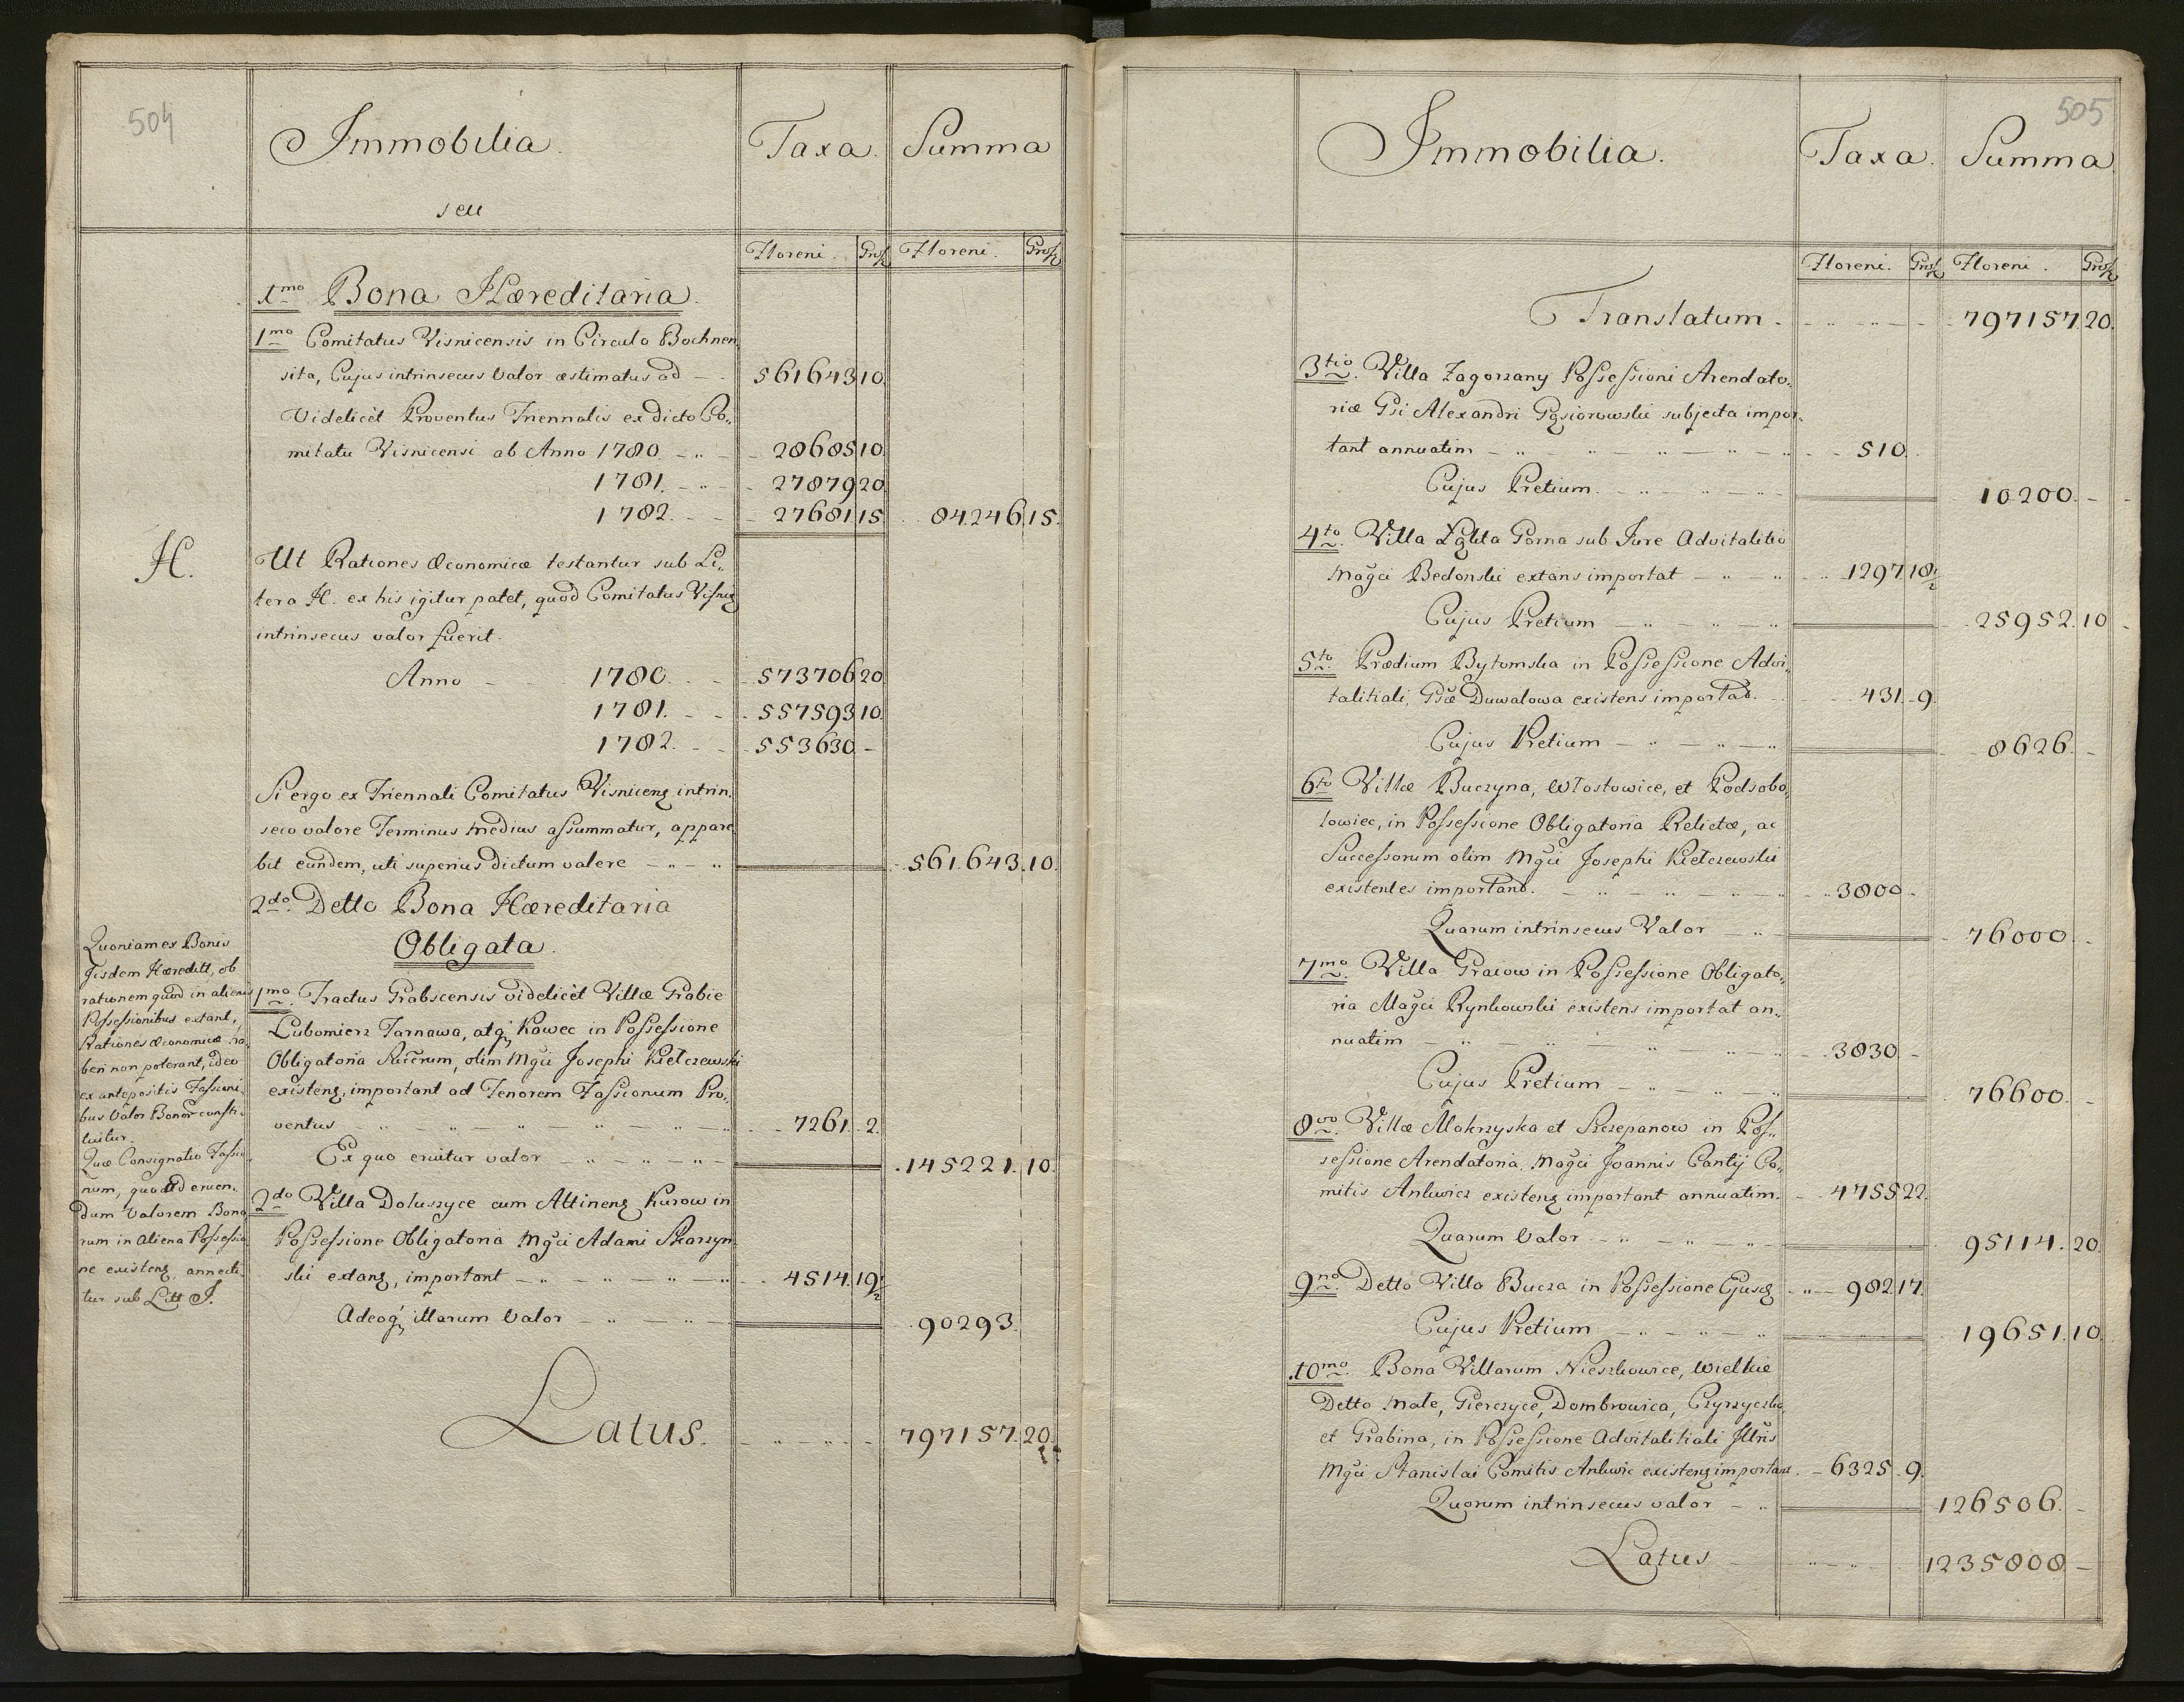 504
Immobilia.
seu
Taxa. Summa
Floreni. Gross Floreni. Gross
1mo Bona Hæreditaria.
1mo Comitatus Visnicensis in Circulo Bochnen.
sita, Cujus intrinsecus Valor æstimatus ad — 561643 10.
Videlicèt Proventus Triennalis ex dicto Co„
mitatu Visnicensi ab Anno 1780. — 28685 10.
1781. — 27879 20.
1782. — 27681. 15. 84246. 15.
H.
Ut Rationes Œconomicæ testantur sub Li„
tera H. ex his igitur patet, quod Comitatus Visnicz
intrinsecus valor fuerit.
Anno — 1780. — 573706 20
1781. — 557593 10.
1782. — 553630. —
Si ergo ex Triennali Comitatus Visnicenz intrin„
seco valore Terminus medius assummatur, appare„
bit eundem, uti superius dictum valere — 561.643. 10.
2do. Detto Bona Hæreditaria
Obligata.
Quoniam ex Bonis
Jisdem Hæreditt, ob
rationem quod in alienis
Possessionibus extant,
Rationes œconomicæ ha„
beri non poterant, ideo
ex antepositis Fassioni„
bus Valor Bonor consti„
tuitur.
Quæ Consignatio Fassio„
num, quoad eruen„
dum Valorem Bono„
rum in aliena Possessio„
ne existenz, annecti„
tur sub Litt J.
1mo. Tractus Grabscensis videlicèt Villæ Grabie
Lubomierz Tarnawa, atq Kawec in Possessione
Obligatoria Succrum, olim Mgci Josephi Kiełczewski
existenz, important ad Tenorem Fassionum Pro„
ventus — 7261. 2.
Ex quo eruitur valor — 145221. 10.
2do Villa Doluszyce cum Attinenz Kurow in
Possessione Obligatoria Mgci Adami Skarzyn„
ski extanz, important — 4514. 19½
Adeoq illarum Valor — 90293.
Latus. — 797157. 20.
505
Immobilia.
Taxa. Summa
Floreni. Gross Floreni. Gross
Translatum. — 797157. 20.
3tio. Villa Zagorzany Possessioni Arendato„
riæ Gsi Alexandri Gąsiorowski subjecta impor„
tant annuatim — 510.
Cujus Pretium. — 10200. —
4to. Villa Łąkta Gorna sub Jure Advitalitio
Magci Bedonski extans importat — 1297 18½
Cujus Pretium — 25952. 10
5to. Prædium Bytomska in Possessione Advi„
talitiali, Gsæ Duwalowa existens importad. — 431. 9.
Cujus Pretium — 8626. —
6to Villæ Buczyna, Włostowice, et Podsobo„
lowiec, in Possessione Obligatoria Relictæ, ac
Successorum olim Mgci Josephi Kiełczewski
existentes importand. — 3800 —
Quarum intrinsecus Valor — 76000. —
7mo. Villa Graiow in Possessione Obligato„
ria Magci Rynkowski existens importat an„
nuatim — 3830. —
Cujus Pretium — 76600. —
8vo. Villæ Mokrzyska et Szczepanow in Pos„
sessione Arendatoria. Magci Joannis Cantij Co„
mitis Ankwicz existenz important annuatim. — 4755 22.
Quarum Valor — 95114. 20.
9no. Detto Villa Bucza in Possessione Ejusd — 982. 17.
Cujus Pretium — 19651. 10.
10mo. Bona Villarum Nieszkowice, Wielkie
Detto Małe, Gierczyce, Dombrowica, Czyrzyczka,
et Grabina, in Possessione Advitalitiali Jllris
Mgci Stanislai Comitis Ankwic existenz important. — 6325. 9.
Quorum intrinsecus valor — 126506. —
Latus — 1235808. —